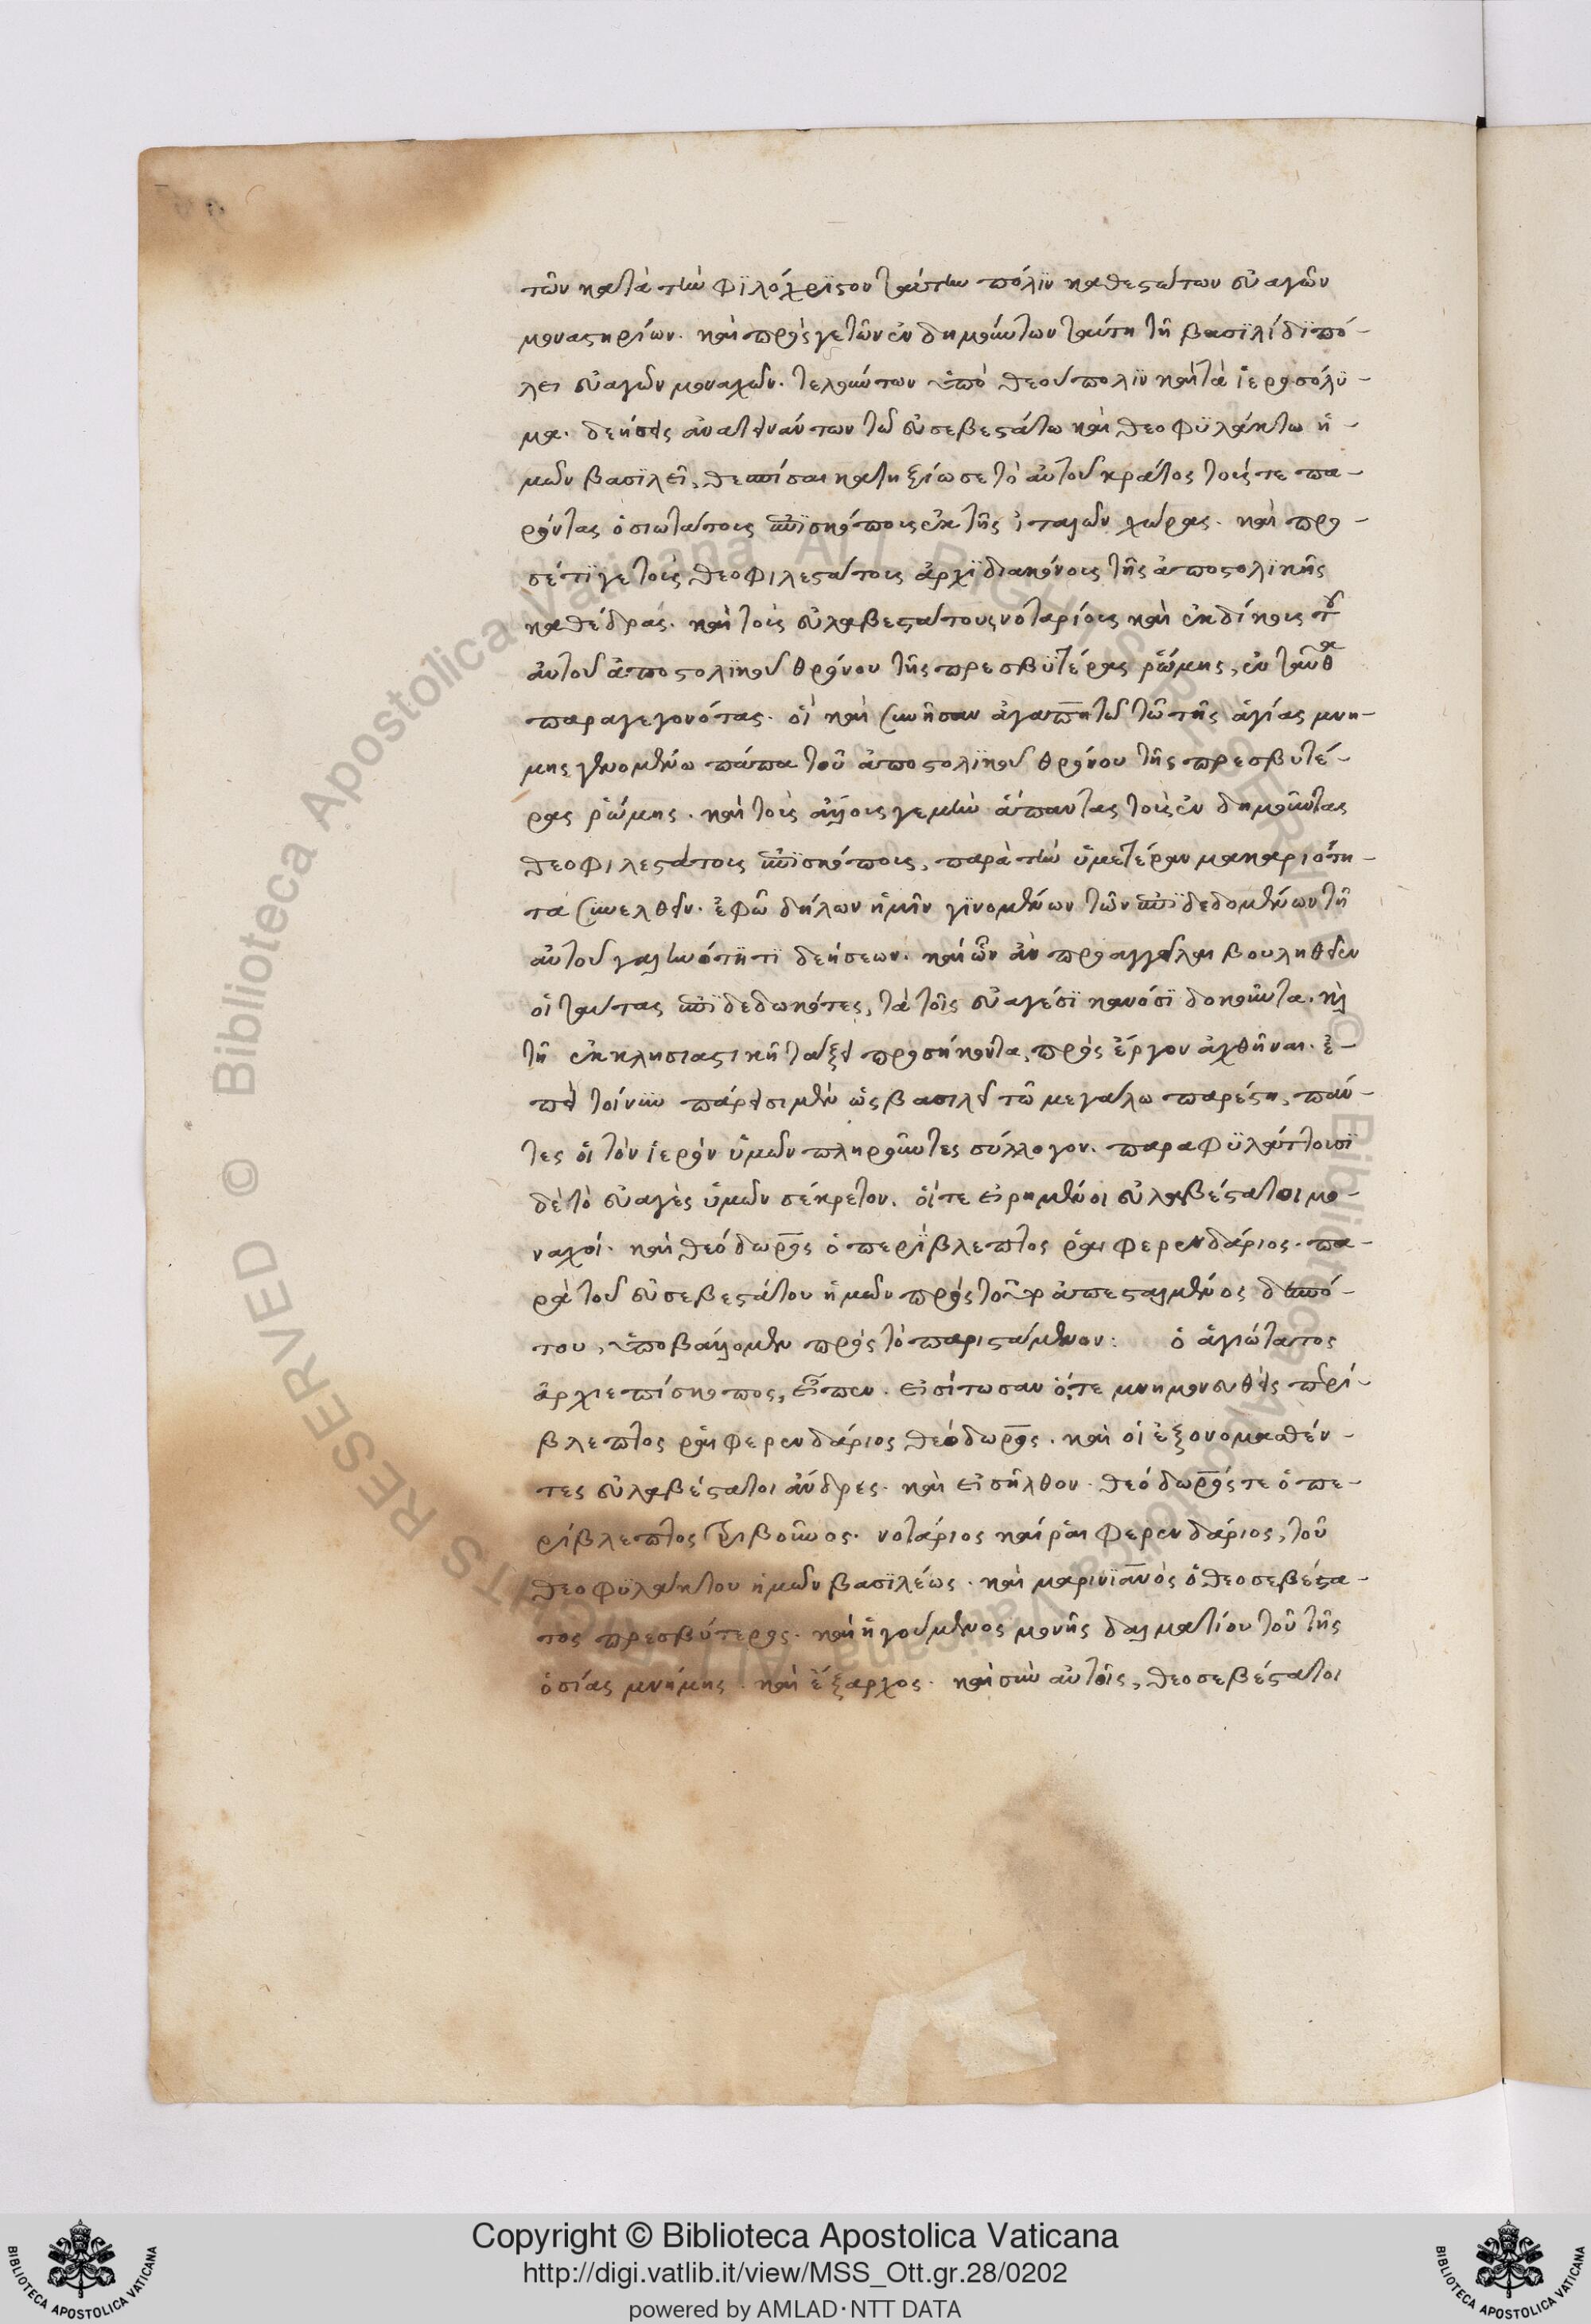 τῶν κατὰ τὴν φϊλόχρϊστον ταύτην πόλϊν καθεστώτων εὐαγῶν
μοναστηρίων. καὶ πρός γε τῶν ἐνδημούντων ταύτη τῆ βασϊλίδϊ πό-
λει εὐαγῶν μοναχῶν. τελούντων ὑπὸ θεούπολϊν καὶ τὰ ἱεροσόλϋ-
μα. δεήσεις ἀνατεινάντων τῶ εὐσεβεστάτω καὶ θεοφϋλάκτω ἡ-
μῶν βασϊλεῖ, θεσπίσαι κατηξίωσε τὸ αὐτοῦ κράτος τοὺς τε πα-
ρόντας ὁσιωτάτους ἐπϊσκόπους ἐκ τῆς ἰταλῶν χώρας. καὶ προ-
σέτϊ γε τοὺς θεοφιλεστάτους ἀρχϊδιακόνους τῆς ἀποστολϊκῆς
καθέδρας. καὶ τοὺς εὐλαβεστάτους νοταρίους καὶ ἐκδίκους τοῦ
αὐτοῦ ἀποστολϊκοῦ θρόνου τῆς πρεσβϋτέρας ῥώμης, ἐνταῦθα
παραγεγονότας. οἳ καὶ συνῆσαν ἀγαπητῶ τῶ τῆς ἁγίας μνή-
μης γενομένω πάπα τοῦ ἀποστολϊκοῦ θρόνου τῆς πρεσβυτέ-
ρας ῥώμης. καὶ τοὺς ἄλλους γε μὴν ἅπαντας τοὺς ἐνδημοῦντας
θεοφιλεστάτους ἐπϊσκόπους, παρὰ τὴν ὑμετέραν μακαριότη-
τα συνελθεῖν. ἐφῶ δήλων ἡμῖν γϊνομένων τῶν ἐπϊδεδομένων τῆ
αὐτοῦ γαληνότητϊ δεήσεων. καὶ ὧν ἂν προαγγεῖλαι βουληθεῖεν
οἱ ταύτας ἐπϊδεδωκότες, τὰ τοῖς εὐαγέσϊ κανόσϊ δοκοῦντα. καὶ
τῆ ἐκκλησιαστικῆ τάξει προσήκοντα, πρὸς ἔργον ἀχθῆναι. ἐ-
πεὶ τοίνϋν πάρεισι μὲν ὡς βασιλεῖ τῶ μεγάλω παρέστη, πάν-
τες οἱ τὸν ἱερὸν ὑμῶν πληροῦντες σύλλογον. παραφϋλάττουσϊ
δὲ τὸ εὐαγὲς ὑμῶν σέκρετον. οἵ τε εἰρημένοι εὐλαβέστατοι μο-
ναχοί. καὶ θεόδωρος ὁ περϊβλεπτος ῥαιφερενδάριος. πα-
ρὰ τοῦ εὐσεβεστάτου ἡμῶν πρὸς τοῦτο ἀπεσταλμένος δεσπό-
του, ὑποβάλλομεν πρὸς τὸ παριστάμενον: ὁ ἁγιώτατος
ἀρχιεπίσκοπος, εἶπεν. εἰσίτωσαν ὅ,τε μνημονευθεὶς περί-
βλεπτος ῥαιφερενδάριος θεόδωρος. καὶ οἱ ἐξονομασθέν-
τες εὐλαβέστατοι ἄνδρες. καὶ εἰσῆλθον. θεόδωρός τε ὁ πε-
ρίβλεπτος τριβοῦνος. νοτάριος καὶ ῥαιφερενδάριος, τοῦ
θεοφϋλάκτου ἡμῶν βασϊλέως. καὶ μαρινϊανὸς ὁ θεοσεβέστα-
τος πρεσβύτερος. καὶ ἡγούμενος μονῆς δαλματίου τοῦ τῆς
ὁσίας μνήμης. καὶ ἔξαρχος. καὶ σὺν αὐτοῖς, θεοσεβέστατοι
Copyright © Biblioteca Apostolica Vaticana
http://digi.vatlib.it/view/MSS_Ott.gr.28/0202
powered by AMLAD · NTT DATA